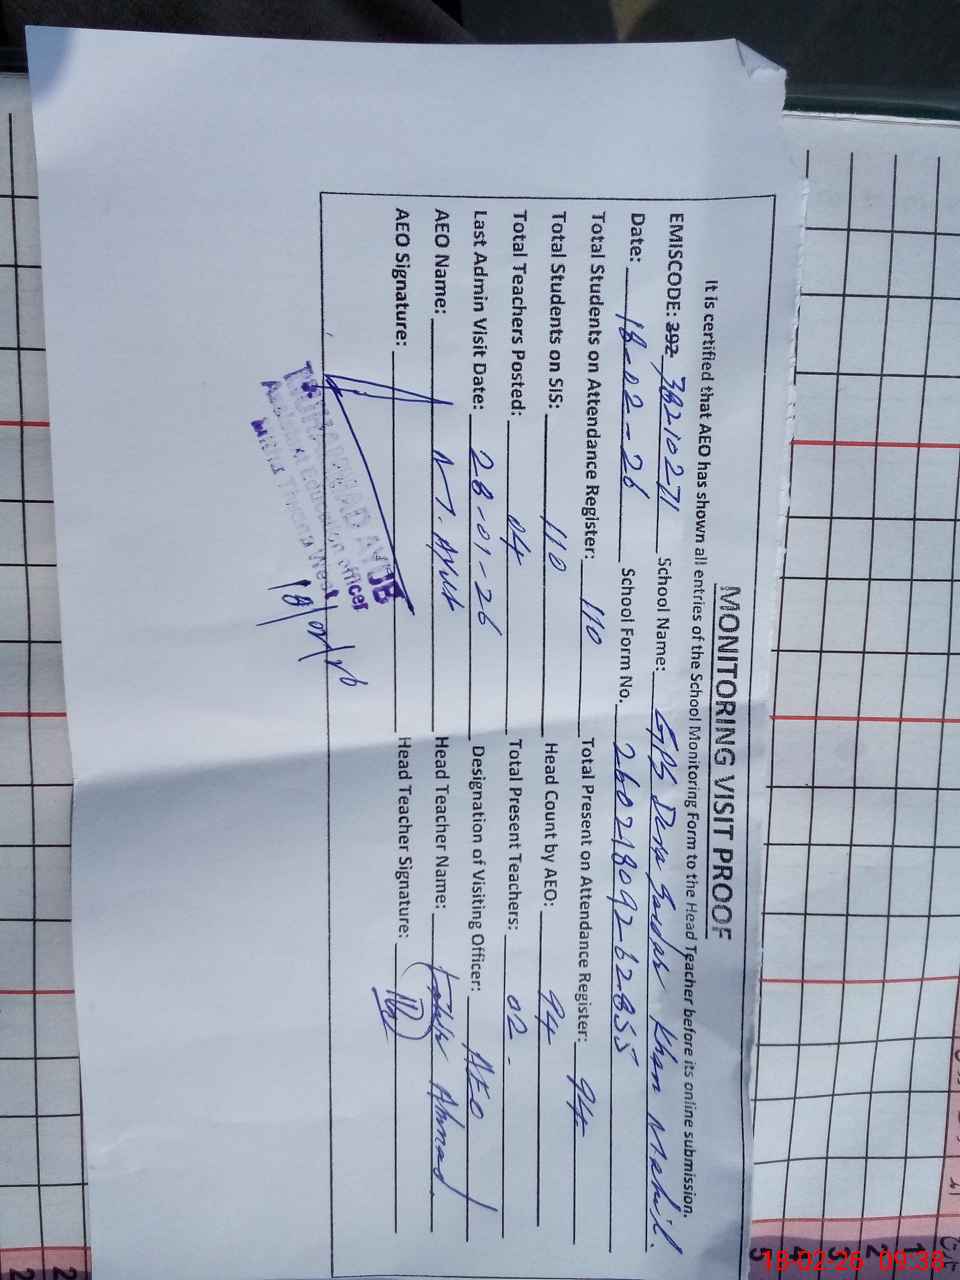 MONITORING VISIT PROOF
It is certified that AEO has shown all entries of the School Monitoring Form to the Head Teacher before its online submission.
EMISCODE: 392 38210271 School Name: GPS Dera Sardar Khan
Date: 18-02-26 School Form No. 260218092-62855
Total Students on Attendance Register: 110 Total Present on Attendance Register: 94
Total Students on SIS: 110 Head Count by AEO: 94
Total Teachers Posted: 04 Total Present Teachers: 02
Last Admin Visit Date: 28-01-26 Designation of Visiting Officer: AEO
AEO Name: M. Ayub Head Teacher Name: Ahmad
AEO Signature: Head Teacher Signature:
MUHAMMAD AYUB
Assistant Education Officer
18/02/26
1
2
3
4
5
2
2
18-02-26 09:38